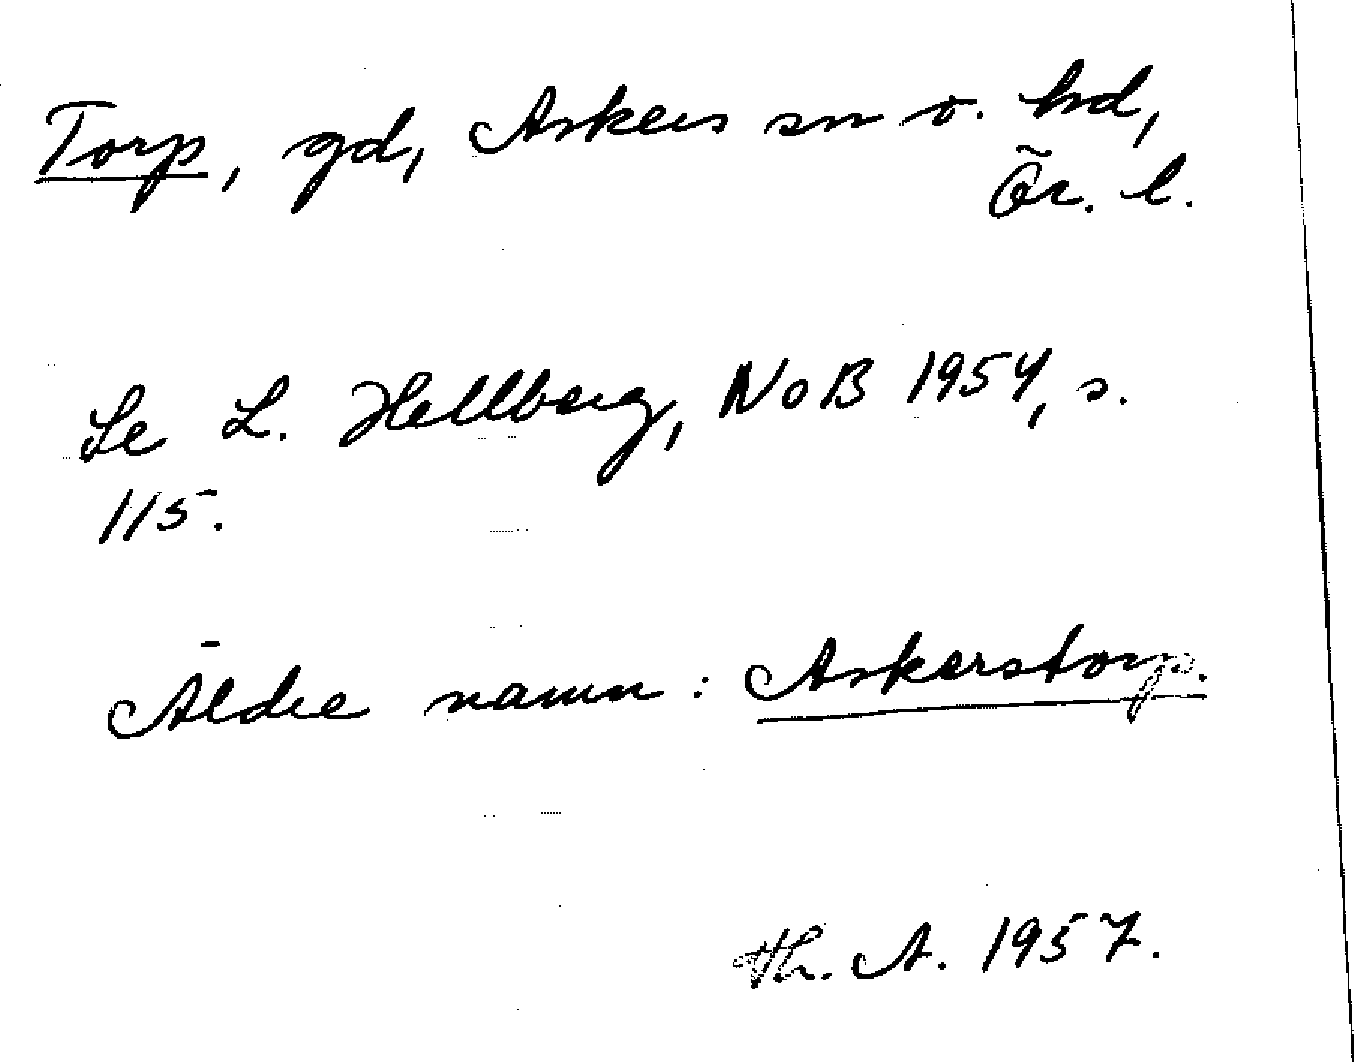 Torp, gd, Askers sn o. hd,
Ör. l.
Se L. Hellberg, NoB 1954, s.
115.
Äldre namn: Askerstorp.
Th. A. 1957.